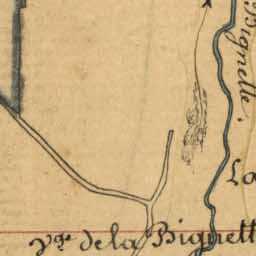 Bignelle.
La
Vge de la Bignett